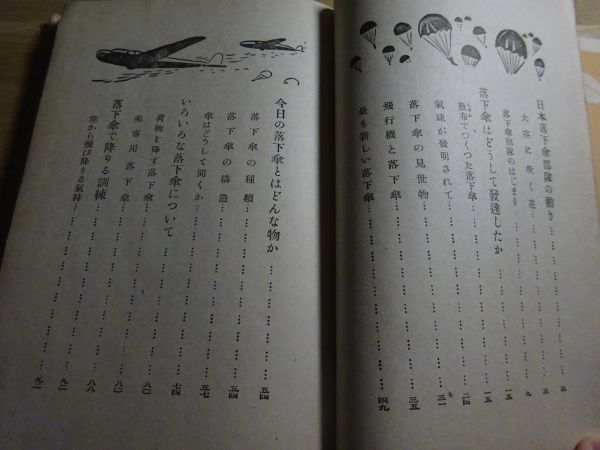 日本落下傘部隊の働き………三
大空に咲く花………三
落下傘部隊のはじまり………九
落下傘はどうして發達したか………一五
敷布でつくつた落下傘………一五
氣球が發明されて………二四
落下傘の見世物………三一
飛行機と落下傘………三五
最も新しい落下傘………四九
今日の落下傘とはどんな物か………五四
落下傘の種類………五四
落下傘の構造………五七
傘はどうして開くか………七四
いろいろな落下傘について………八〇
荷物を降す落下傘………八〇
乘客用落下傘………八八
落下傘で降りる訓練………九一
空から飛び降りる氣持………九一